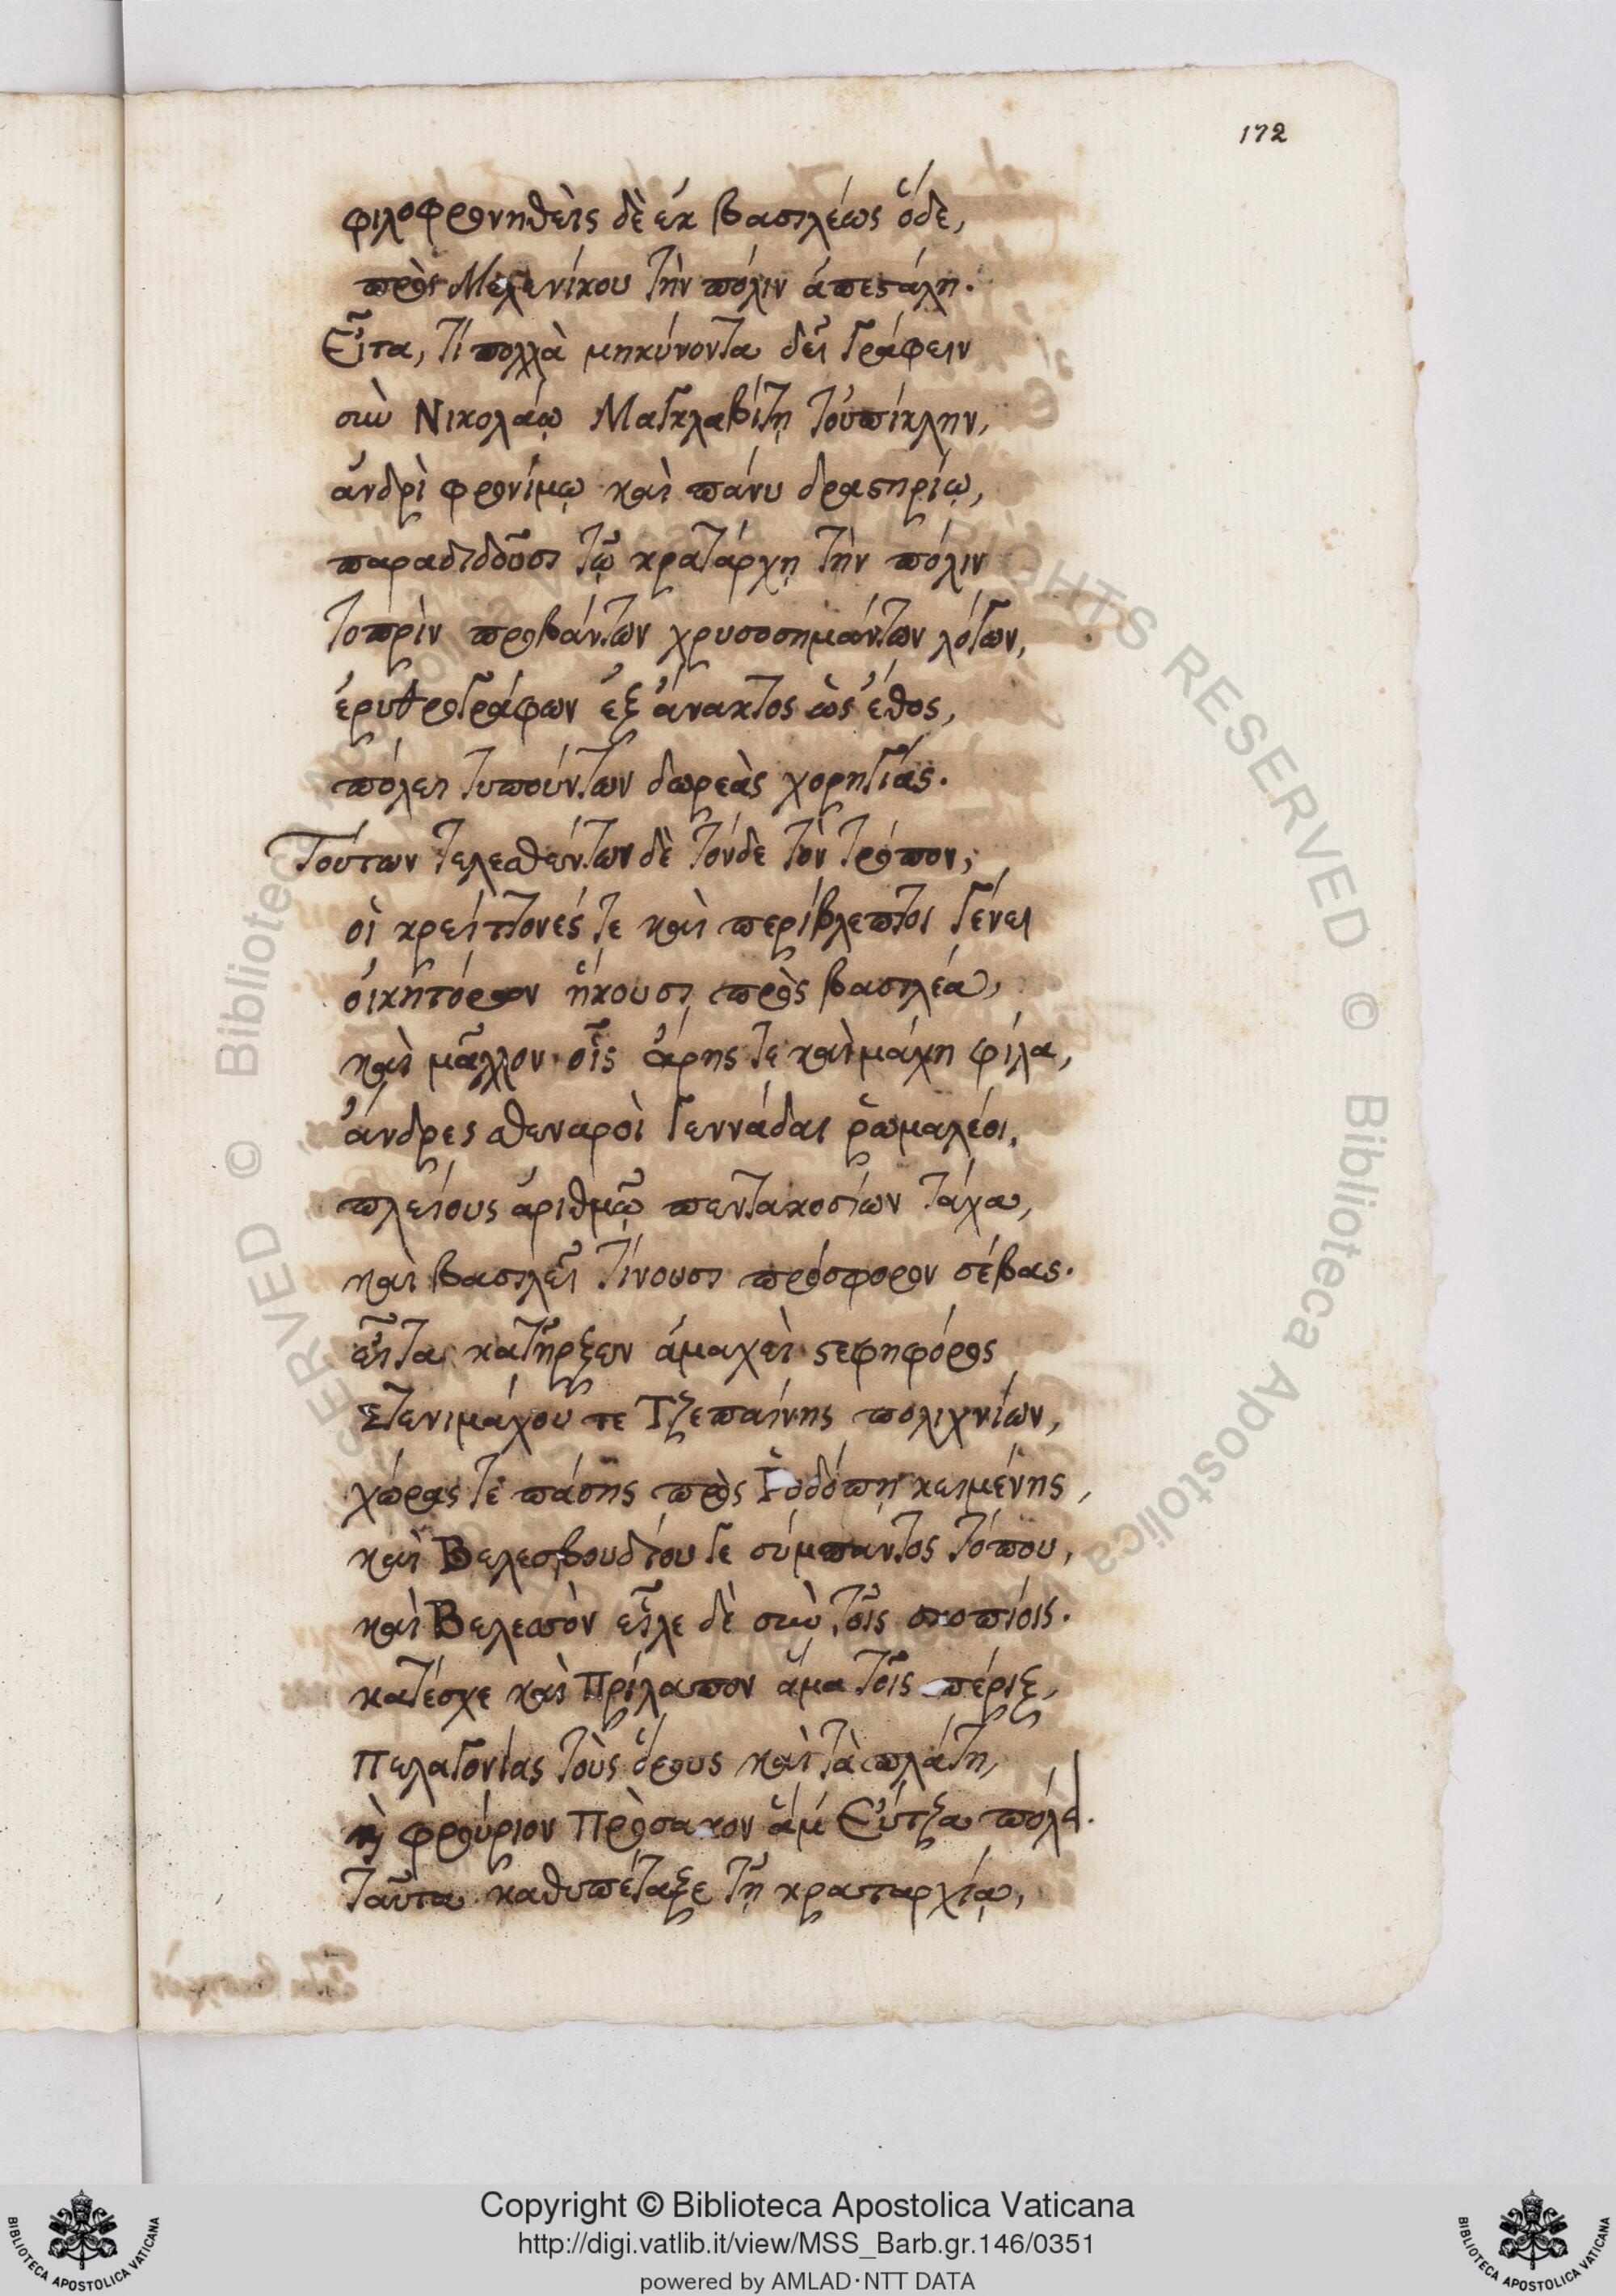 172
φιλοφρονηθεὶς δὲ ἐκ βασιλέως ὅδε,
πρὸς Μελενίκου τὴν πόλιν ἀπεστάλη.
Εἶτα, τί πολλὰ μηκύνοντα δεῖ γράφειν
σὺν Νικολάῳ Μαγκλαβίτῃ τοὐπίκλην,
ἀνδρὶ φρονίμῳ καὶ πάνυ δραστηρίῳ,
παραδιδοῦσι τῷ κρατάρχῃ τὴν πόλιν
τοπρὶν προβάντων χρυσοσημάντων λόγων,
ἐρυθρογράφων ἐξ ἄνακτος ὡς ἔθος,
πόλει τυπούντων δωρεὰς χορηγίας.
Τούτων τελεσθέντων δὲ τόνδε τὸν τρόπον,
οἱ κρείττονές τε καὶ περίβλεπτοι γένει
οἰκητόρων ἥκουσι πρὸς βασιλέα,
καὶ μᾶλλον οἷς ἄρης τε καὶ μάχη φίλα,
ἄνδρες σθεναροὶ γεννάδαι ῥωμαλέοι,
πλείους ἀριθμῷ πεντακοσίων τάχα,
καὶ βασιλεῖ τίνουσι πρόσφορον σέβας.
εἶτα κατῆρξεν ἀμαχεὶ στεφηφόρος
Στενιμάχου τε Τζεπαίνης πολιχνίων,
χώρας τε πάσης πρὸς Ῥοδόπῃ κειμένης,
καὶ Βελεσβουδίου γε σύμπαντος τόπου,
καὶ Βελεσσὸν εἷλε δὲ σὺν τοῖς σκοπίοις.
κατέσχε καὶ Πρίλαπον ἅμα τοῖς πέριξ,
Πελαγονίας τοὺς ὅρους καὶ τὰ πλάτη,
κὴ φρούριον Πρόσακον ἅμ' Εὔτζα πόλει.
ταῦτα καθυπέταξε τῇ κραταρχίᾳ,
Copyright © Biblioteca Apostolica Vaticana
http://digi.vatlib.it/view/MSS_Barb.gr.146/0351
powered by AMLAD·NTT DATA
BIBLIOTECA APOSTOLICA VATICANA
BIBLIOTECA APOSTOLICA VATICANA